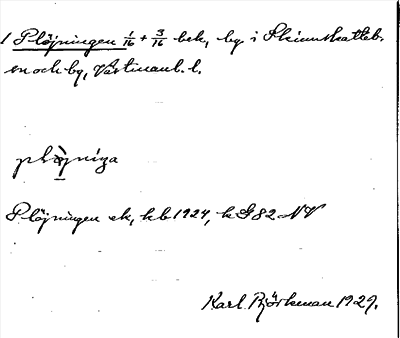 1 Plöjningen 1/16 + 3/16 bek, bg i Skinnskatteb.
sn och bg, Västmanl. l.
plöjniŋa
Plöjningen ek, hkb 1924, k G82 NV
Karl Björkman 1929.